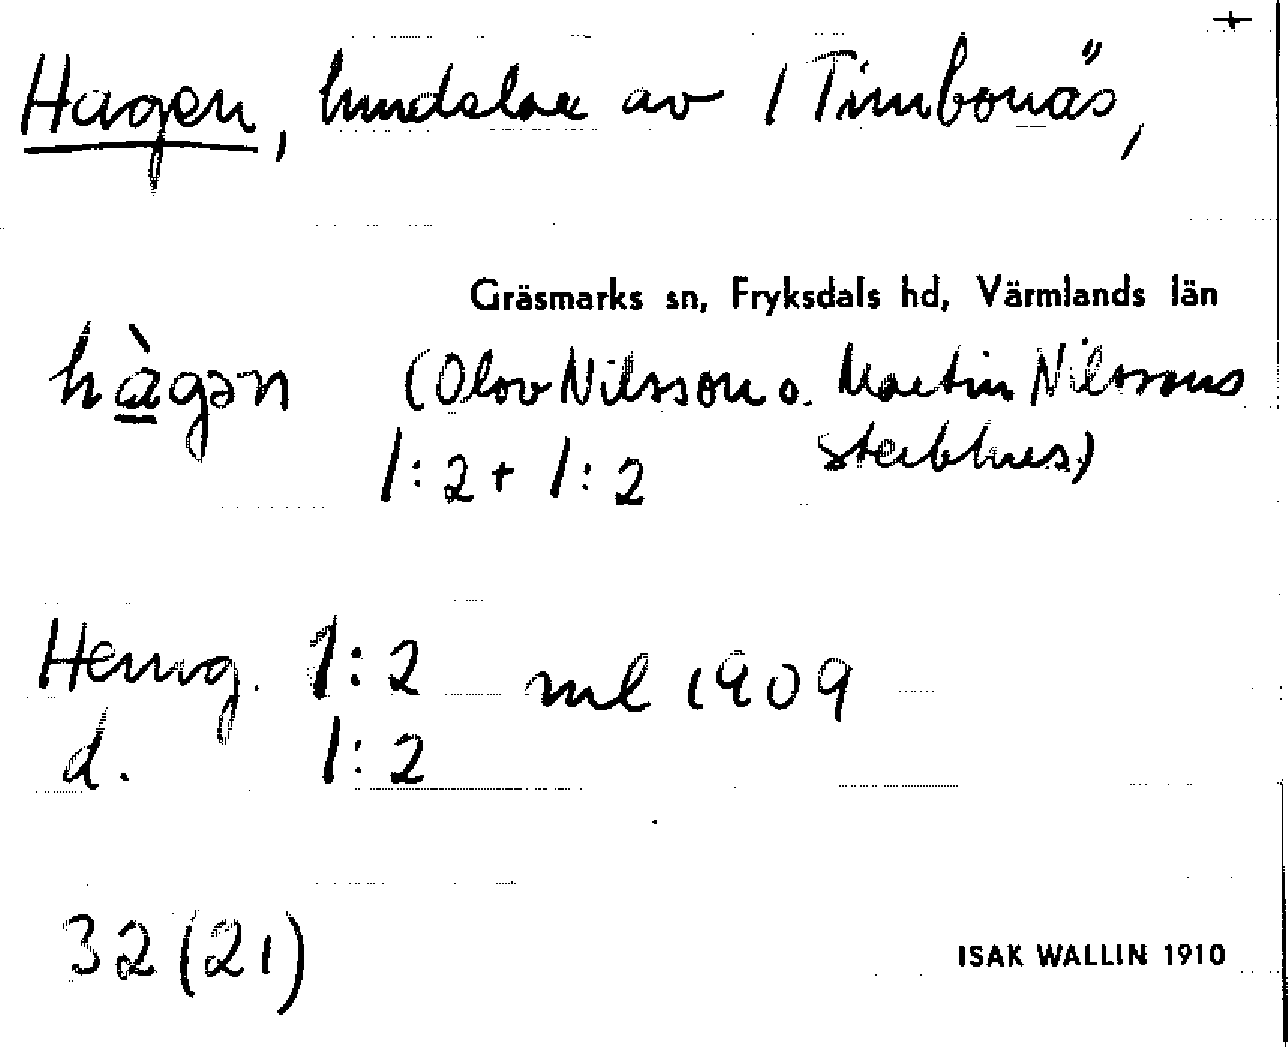 +
Hagen, hemdelar av 1 Timbonäs,
Gräsmarks sn, Fryksdals hd, Värmlands län
hàgən (Olov Nilsson o. Martin Nilssons
1:2 + 1:2 sterbhus)
Hemg. 1:2 ml 1909
d. 1:2
32(21)
ISAK WALLIN 1910